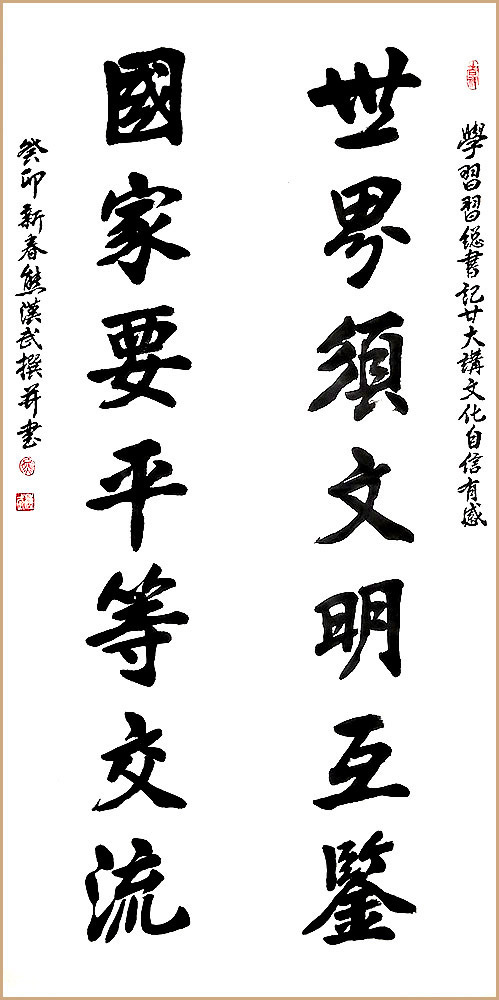 學習習總書記廿大講文化自信有感
世界須文明互鑒
國家要平等交流
癸卯新春熊漢武撰并书